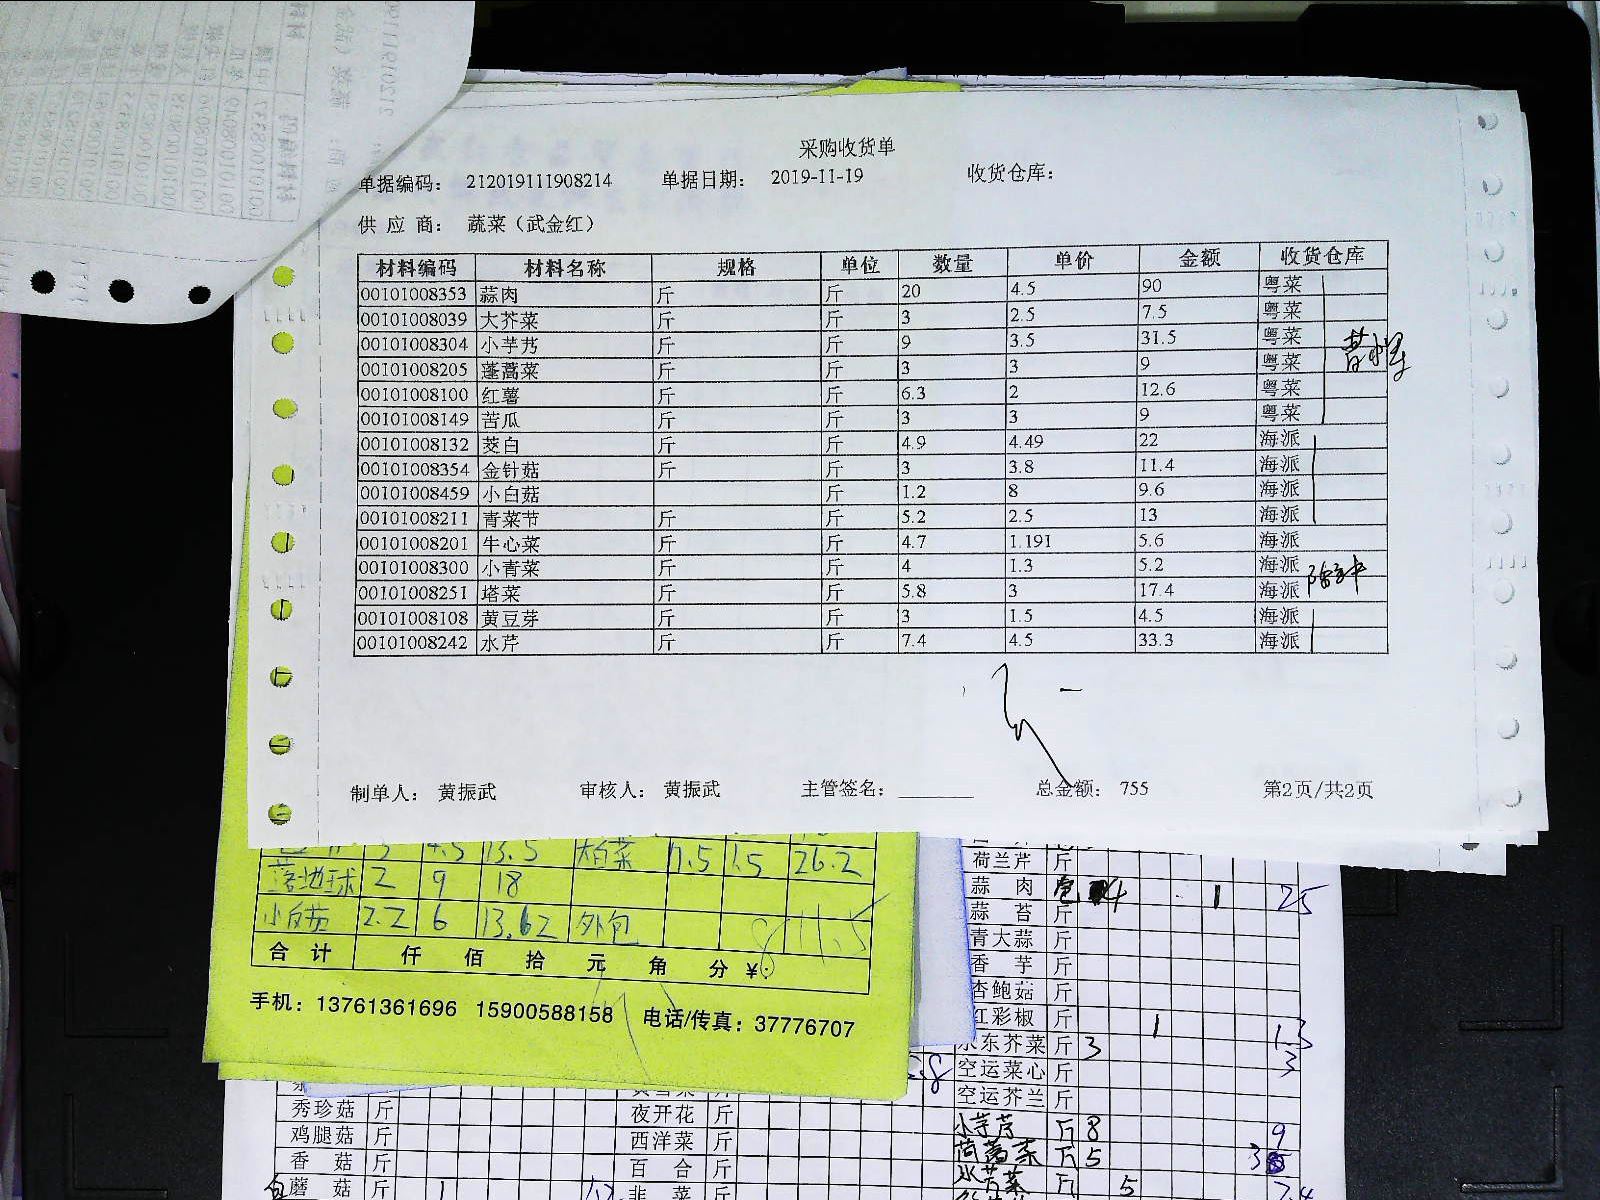 采购收货单
单据编码： 212019111908214 单据日期： 2019-11-19 收货仓库：
供 应 商： 蔬菜（武金红）
材料编码 材料名称 规格 单位 数量 单价 金额 收货仓库
00101008353 蒜肉 斤 斤 20 4.5 90 粤菜
00101008039 大芥菜 斤 斤 3 2.5 7.5 粤菜
00101008304 小芋艿 斤 斤 9 3.5 31.5 粤菜
00101008205 蓬蒿菜 斤 斤 3 3 9 粤菜
00101008100 红薯 斤 斤 6.3 2 12.6 粤菜
00101008149 苦瓜 斤 斤 3 3 9 粤菜
00101008132 茭白 斤 斤 4.9 4.49 22 海派
00101008354 金针菇 斤 斤 3 3.8 11.4 海派
00101008459 小白菇 斤 1.2 8 9.6 海派
00101008211 青菜节 斤 斤 5.2 2.5 13 海派
00101008201 牛心菜 斤 斤 4.7 1.191 5.6 海派
00101008300 小青菜 斤 斤 4 1.3 5.2 海派
00101008251 塔菜 斤 斤 5.8 3 17.4 海派
00101008108 黄豆芽 斤 斤 3 1.5 4.5 海派
00101008242 水芹 斤 斤 7.4 4.5 33.3 海派
制单人： 黄振武 审核人： 黄振武 主管签名： 总金额： 755 第2页/共2页
4.5 13.5 大白菜 1.5 26.2
落地球 2 9 18
2.2 6 13.62 外包 11.5
合 计 仟 佰 拾 元 角 分 ¥:
手机：13761361696 15900588158 电话/传真：37776707
荷兰芹 斤
蒜 肉 4 1 25
蒜 苔 斤
青大蒜 斤
香 芋 斤
杏鲍菇 斤
红彩椒 斤 1 1.3
水东芥菜 斤 3 3
空运菜心 斤
空运芥兰 斤
秀珍菇 斤 夜开花 斤 小芋艿 斤 8 9
鸡腿菇 斤 西洋菜 斤 茼蒿菜 斤 5
香 菇 斤 百 合 斤 水芹菜 斤 5 7.4
蘑 菇 斤 1 韭 菜 斤